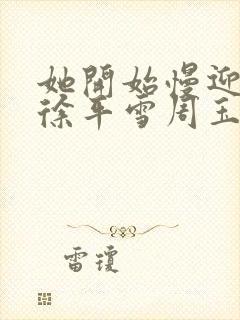 她開始慢迎
徐平雪周玉
雷瓊